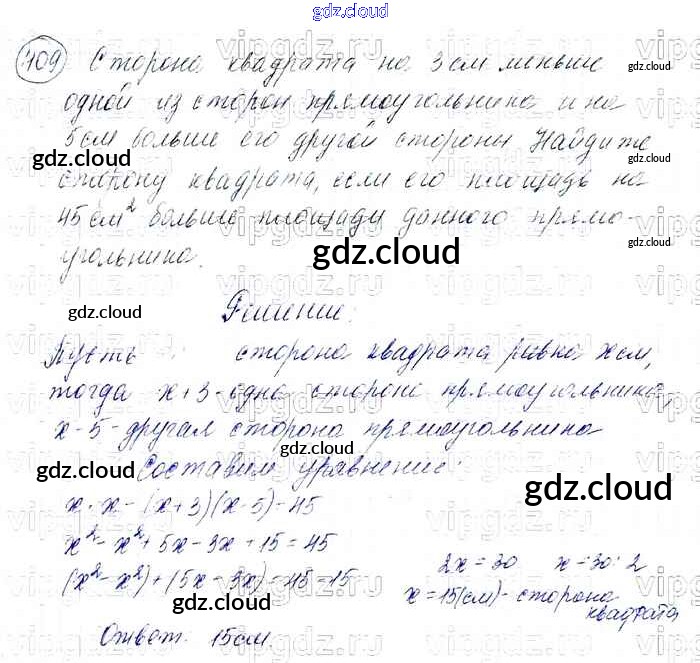 gdz.cloud
409 Сторона квадрата на 3 см меньше
gdz.cloud
одной из сторон прямоугольника и на
5 см больше его другой стороны Найдите
gdz.cloud
gdz.cloud
сторону квадрата, если его площадь на
45 см² больше площади данного прямо-
угольника.
gdz.cloud
gdz.cloud
gdz.cloud
Решение:
Пусть сторона квадрата равна x см,
тогда x+3-одна сторона прямоугольника,
x-5-другая сторона прямоугольника
gdz.cloud
Составим уравнение:
gdz.cloud
gdz.cloud
x·x-(x+3)(x-5)=45
x²-x²+5x-3x+15=45
(x²-x²)+(5x-3x)=45-15
2x=30 x=30:2
x=15(см)-сторона
квадрата
gdz.cloud
gdz.cloud
Ответ. 15см.